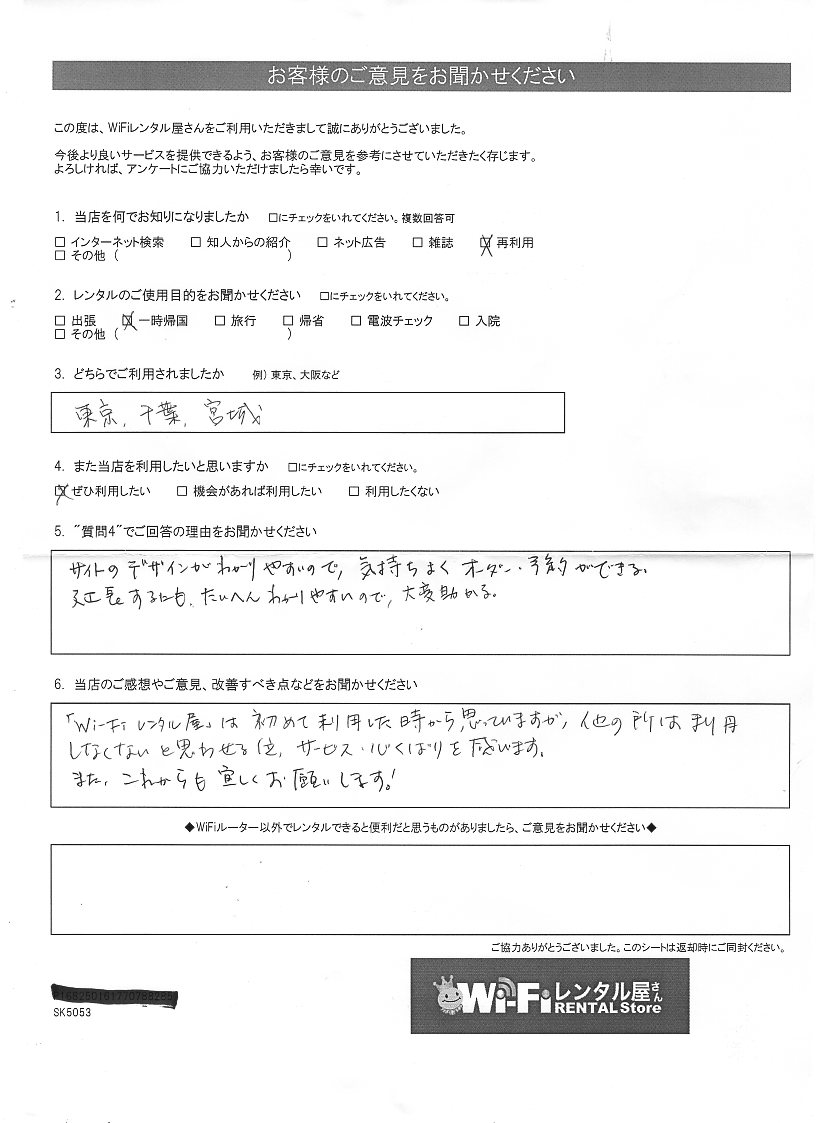 お客様のご意見をお聞かせください
この度は、WiFiレンタル屋さんをご利用いただきまして誠にありがとうございました。
今後より良いサービスを提供できるよう、お客様のご意見を参考にさせていただきたく存じます。
よろしければ、アンケートにご協力いただけましたら幸いです。
1. 当店を何でお知りになりましたか □にチェックをいれてください。複数回答可
□ インターネット検索 □ 知人からの紹介 □ ネット広告 □ 雑誌 ☒ 再利用
□ その他 ( )
2. レンタルのご使用目的をお聞かせください □にチェックをいれてください。
□ 出張 ☒ 一時帰国 □ 旅行 □ 帰省 □ 電波チェック □ 入院
□ その他 ( )
3. どちらでご利用されましたか 例) 東京、大阪など
東京, 千葉, 宮城
4. また当店を利用したいと思いますか □にチェックをいれてください。
☒ ぜひ利用したい □ 機会があれば利用したい □ 利用したくない
5. "質問4"でご回答の理由をお聞かせください
サイトのデザインがわかりやすいので, 気持ちよくオーダー・予約ができる。
延長するにも, たいへんわかりやすいので, 大変助かる。
6. 当店のご感想やご意見、改善すべき点などをお聞かせください
「Wi-Fiレンタル屋」は初めて利用した時から思っていますが, 他の所は利用
しなくないと思わせる位, サービス・心くばりを感います。
また, これからも宜しくお願いします!
◆WiFiルーター以外でレンタルできると便利だと思うものがありましたら、ご意見をお聞かせください◆
ご協力ありがとうございました。このシートは返却時にご同封ください。
Wi-Fiレンタル屋さん
RENTAL Store
SK5053